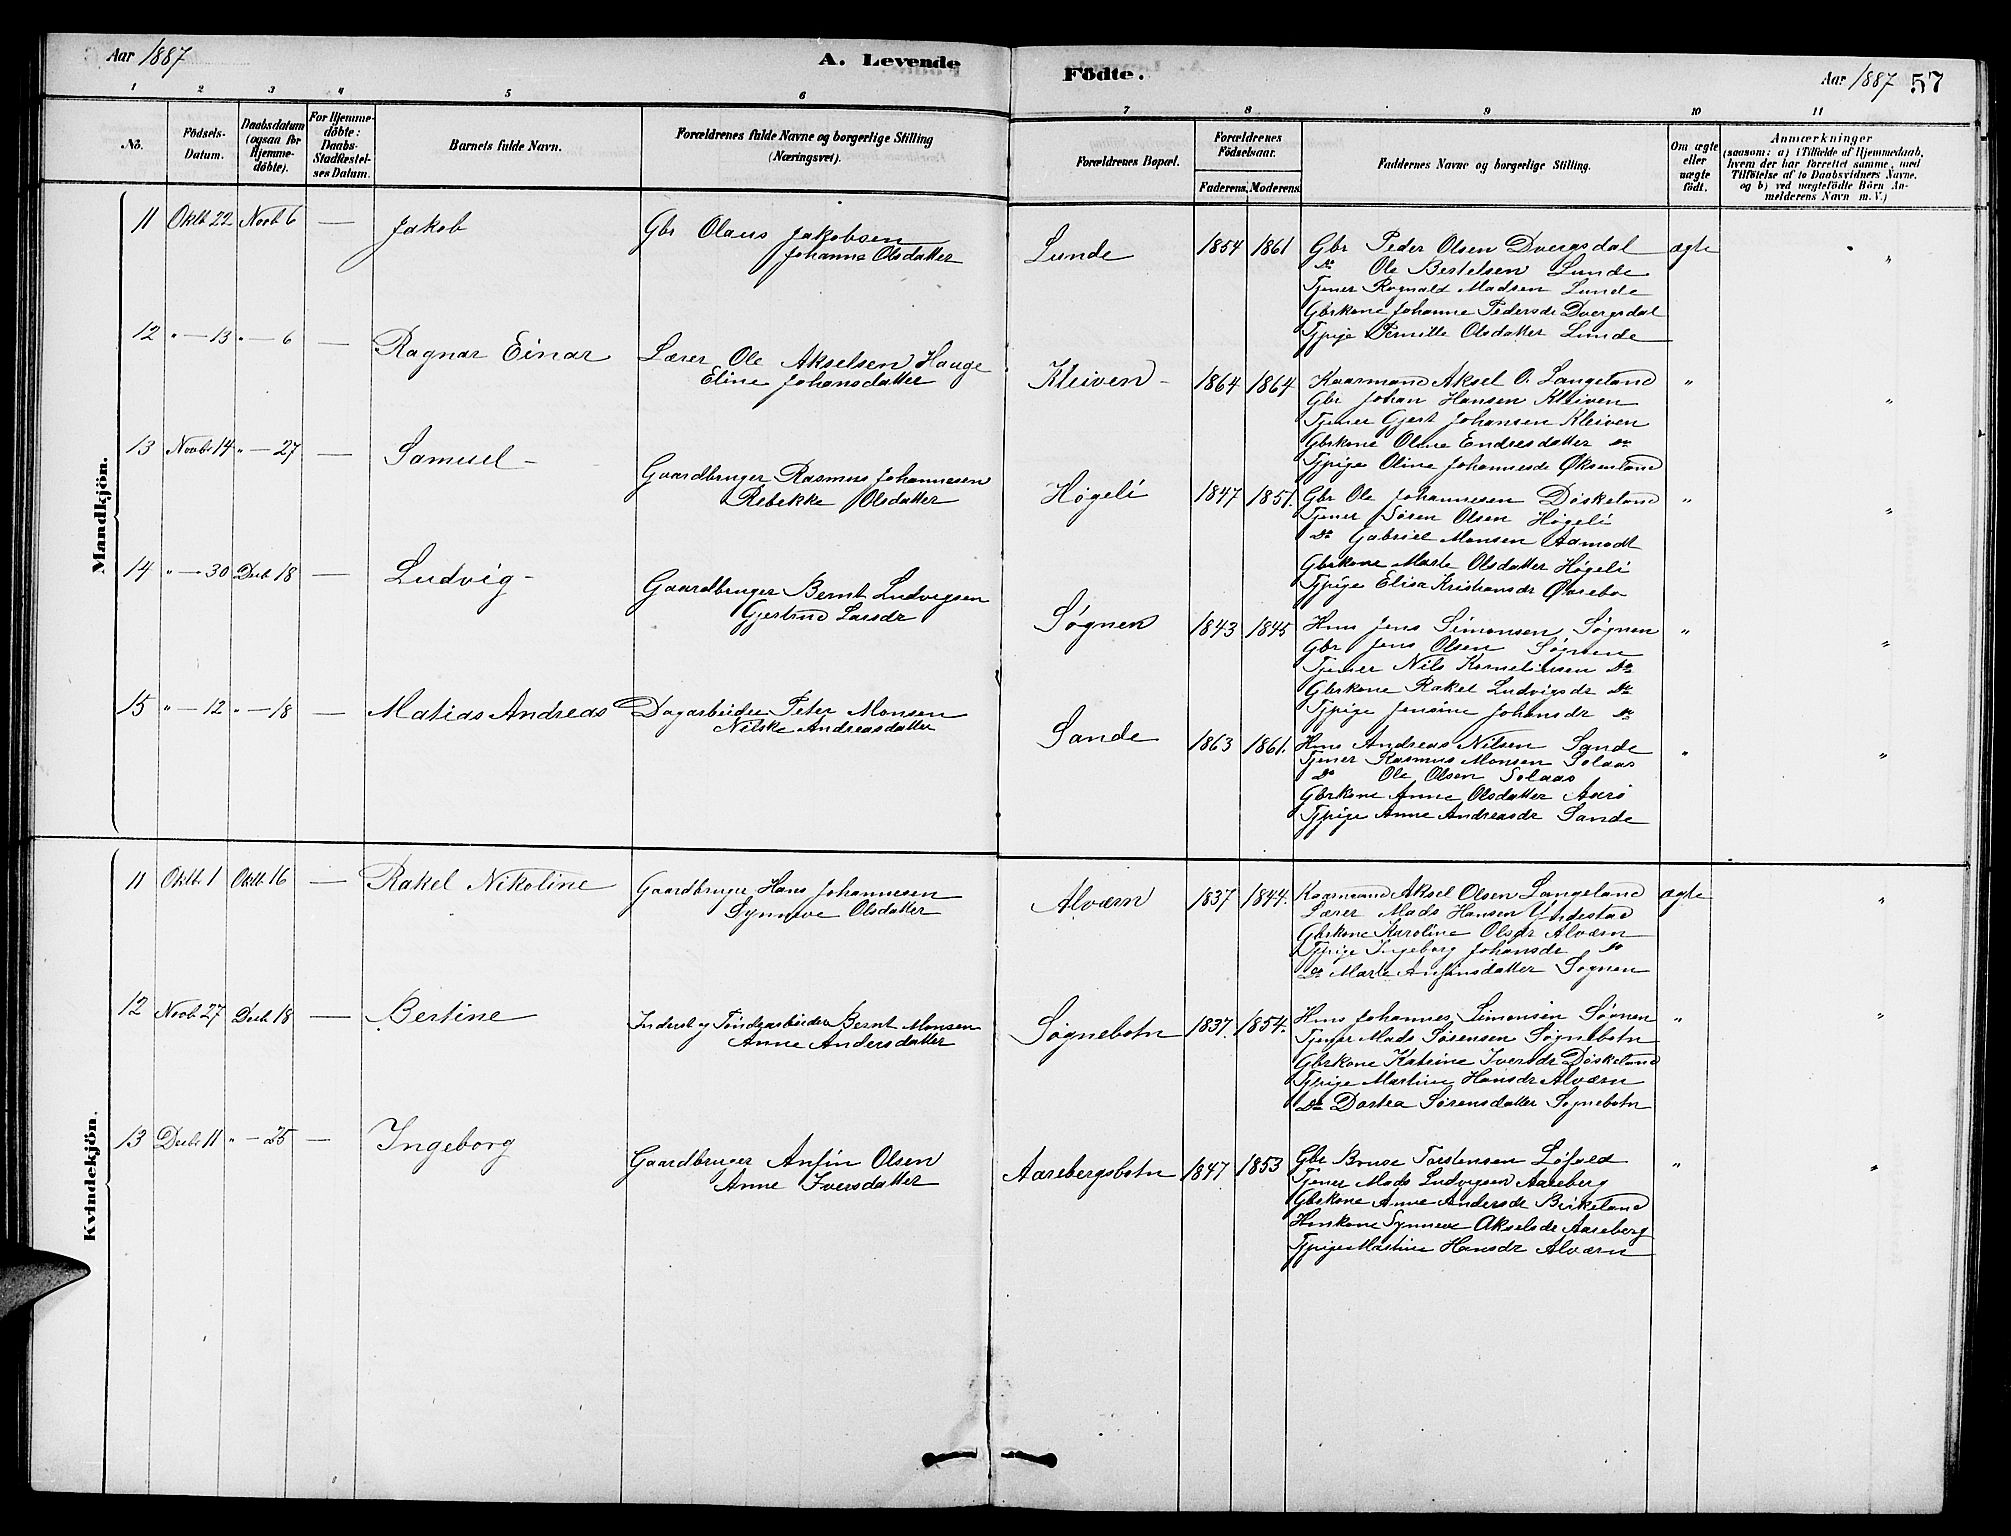 Aar 1887
A. Levende
Födte.
Aar 1887 57
1 2 3 4 5 6 7 8 9 10 11
No.
Födsels-Datum.
Daabsdatum (ogsaa for Hjemme-döbte).
For Hjemme-döbte: Daabs-Stadfæstel-ses Datum.
Barnets fulde Navn.
Forældrenes fulde Navne og borgerlige Stilling (Næringsvei).
Forældrenes Bopæl.
Forældrenes Födselsaar.
Faderens. Moderens.
Faddernes Navne og borgerlige Stilling.
Om ægte eller uægte födt.
Anmærkninger
(saasom: a) i Tilfælde af Hjemmedaab, hvem der har forrettet samme, med Tilföielse af to Daabsvidners Navne, og b) ved uægtefödte Börn An-melderens Navn m. V.)
Mandkjön.
11 Oktb 22 Novb 6 — Jakob
Gbr Olaus Jakobsen
Johanne Olsdatter
Lunde 1854 1861
Gbr Peder Olsen Dvergsdal ægte "
do Ole Bertelsen Lunde
Tjener Rognald Madsen Lunde
Gbrkone Johanne Pedersdr Dvergsdal
Tjpige Pernille Olsdatter Lunde
12 " — 13 " — 6 — Ragnar Einar
Lærer Ole Akselsen Hauge
Eline Johansdatter
Kleiven - 1864 1864
Kaarmand Aksel O. Langeland " "
Gbr Johan Hansen Kleiven
Tjener Gjert Johansen Kleiven
Gbrkone Oline Endresdatter do
Tjpige Oline Johannesdr Øksenland
13 Novbr 14 " — 27 — Samuel -
Gaardbruger Rasmus Johannesen
Rebekke Olsdatter
Høgeli 1847 1851.
Gbr Ole Johannesen Døskeland " "
Tjener Søren Olsen Høgeli
do Gabriel Monsen Aamodt
Gbrkone Marte Olsdatter Høgeli
Tjpige Elisa Kristiansdr Øvrebø
14 " — 30 Decb 18 — Ludvig -
Gaardbruger Bernt Ludvigsen
Gjertrud Larsdr
Søgnen 1843 1845
Hms Jens Simonsen Søgnen " "
Gbr Jens Olsen Søgnen
Tjener Nils Korneliussen do
Gbrkone Rakel Ludvigsdr do
Tjpige Jensine Johansdr do
15 " — 12 " — 18 — Matias Andreas
Dagarbeider Peter Monsen
Nilske Andreasdatter
Sande 1863 1861.
Hms Andreas Nilsen Sande " "
Tjener Rasmus Monsen Solaas
do Ole Olsen Solaas
Gbrkone Anne Olsdatter Aarø
Tjpige Anne Andreasdr Sande
Kvindekjön.
11 Oktb. 1 Oktb. 16 — Rakel Nikoline
Gaardbruger Hans Johannesen
Synneve Olsdatter
Alværn 1837 1844.
Kaarmand Aksel Olsen Langeland ægte "
Lærer Mads Hansen Undestad
Gbrkone Karoline Olsdr Alværn
Tjpige Ingeborg Johansdr do
do Marte Anfinsdatter Sognen
12 Novb 27 Decb 18 — Bertine
Inderst og Tøndearbeider Bernt Monsen
Anne Andersdatter
Søgnebotn 1837. 1854.
Hms Johannes Simonsen Søgnen " "
Tjener Mads Sørensen Søgnebotn
Gbrkone Katrine Iversdr Døskeland
Tjpige Martine Hansdr Alværn
do Dortea Sørensdatter Søgnebotn
13 Decbr 11 " — 25 — Ingeborg
Gaardbruger Anfin Olsen
Anne Iversdatter
Aarebergsbotn 1847 1853
Gbr Bruse Torstensen Løfald " "
Tjener Mads Ludvigsen Aareberg
Gbrkone Anne Andersdr Birkeland
Hmskone Synneve Akselsdr Aareberg
Tjpige Martine Hansdr Alværn